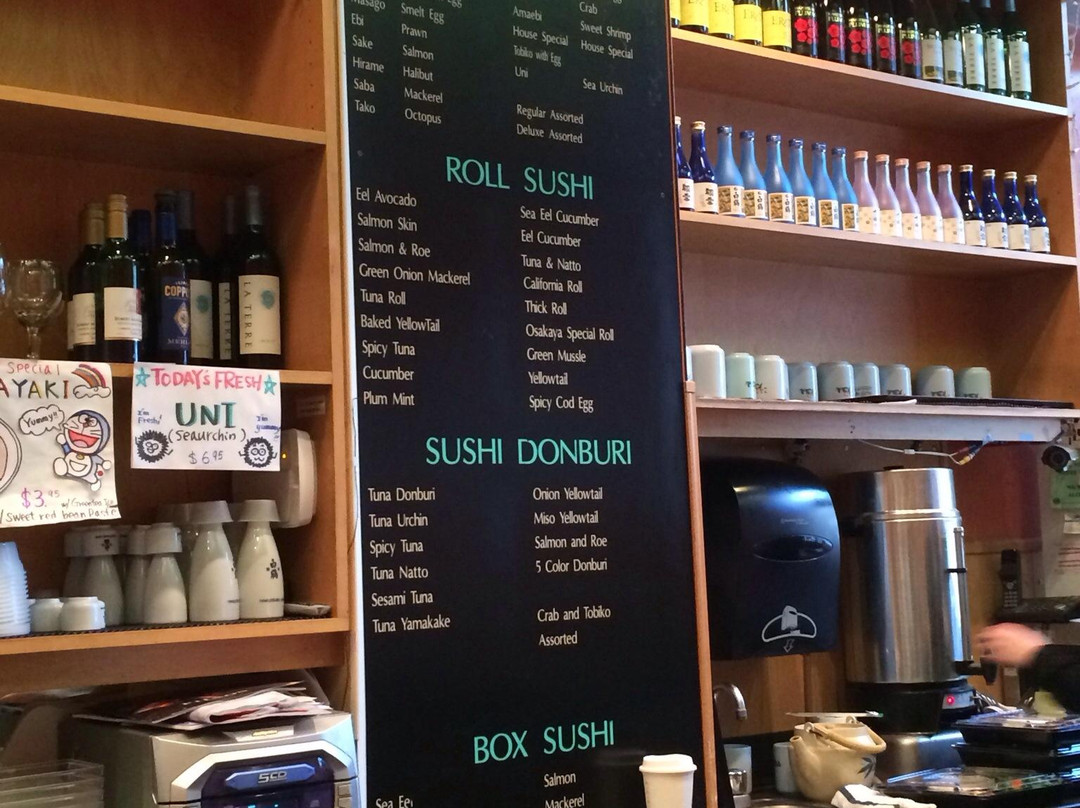 Masago
Ebi
Sake
Hirame
Saba
Tako
Smelt Egg
Prawn
Salmon
Halibut
Mackerel
Octopus
Amaebi
House Special
Tobiko with Egg
Uni
Regular Assorted
Deluxe Assorted
Crab
Sweet Shrimp
House Special
Sea Urchin
ROLL SUSHI
Eel Avocado
Salmon Skin
Salmon & Roe
Green Onion Mackerel
Tuna Roll
Baked YellowTail
Spicy Tuna
Cucumber
Plum Mint
Sea Eel Cucumber
Eel Cucumber
Tuna & Natto
California Roll
Thick Roll
Osakaya Special Roll
Green Mussle
Yellowtail
Spicy Cod Egg
SUSHI DONBURI
Tuna Donburi
Tuna Urchin
Spicy Tuna
Tuna Natto
Sesami Tuna
Tuna Yamakake
Onion Yellowtail
Miso Yellowtail
Salmon and Roe
5 Color Donburi
Crab and Tobiko
Assorted
BOX SUSHI
Salmon
Mackerel
Sea Eel
Special
AYAKI
Yummy!!
$3.95
Sweet red bean Paste
TODAY'S FRESH
I'm Fresh!
UNI
(Seaurchin)
I'm yummy
$6.95
COPP
LA TERRE
白鶴
5CD